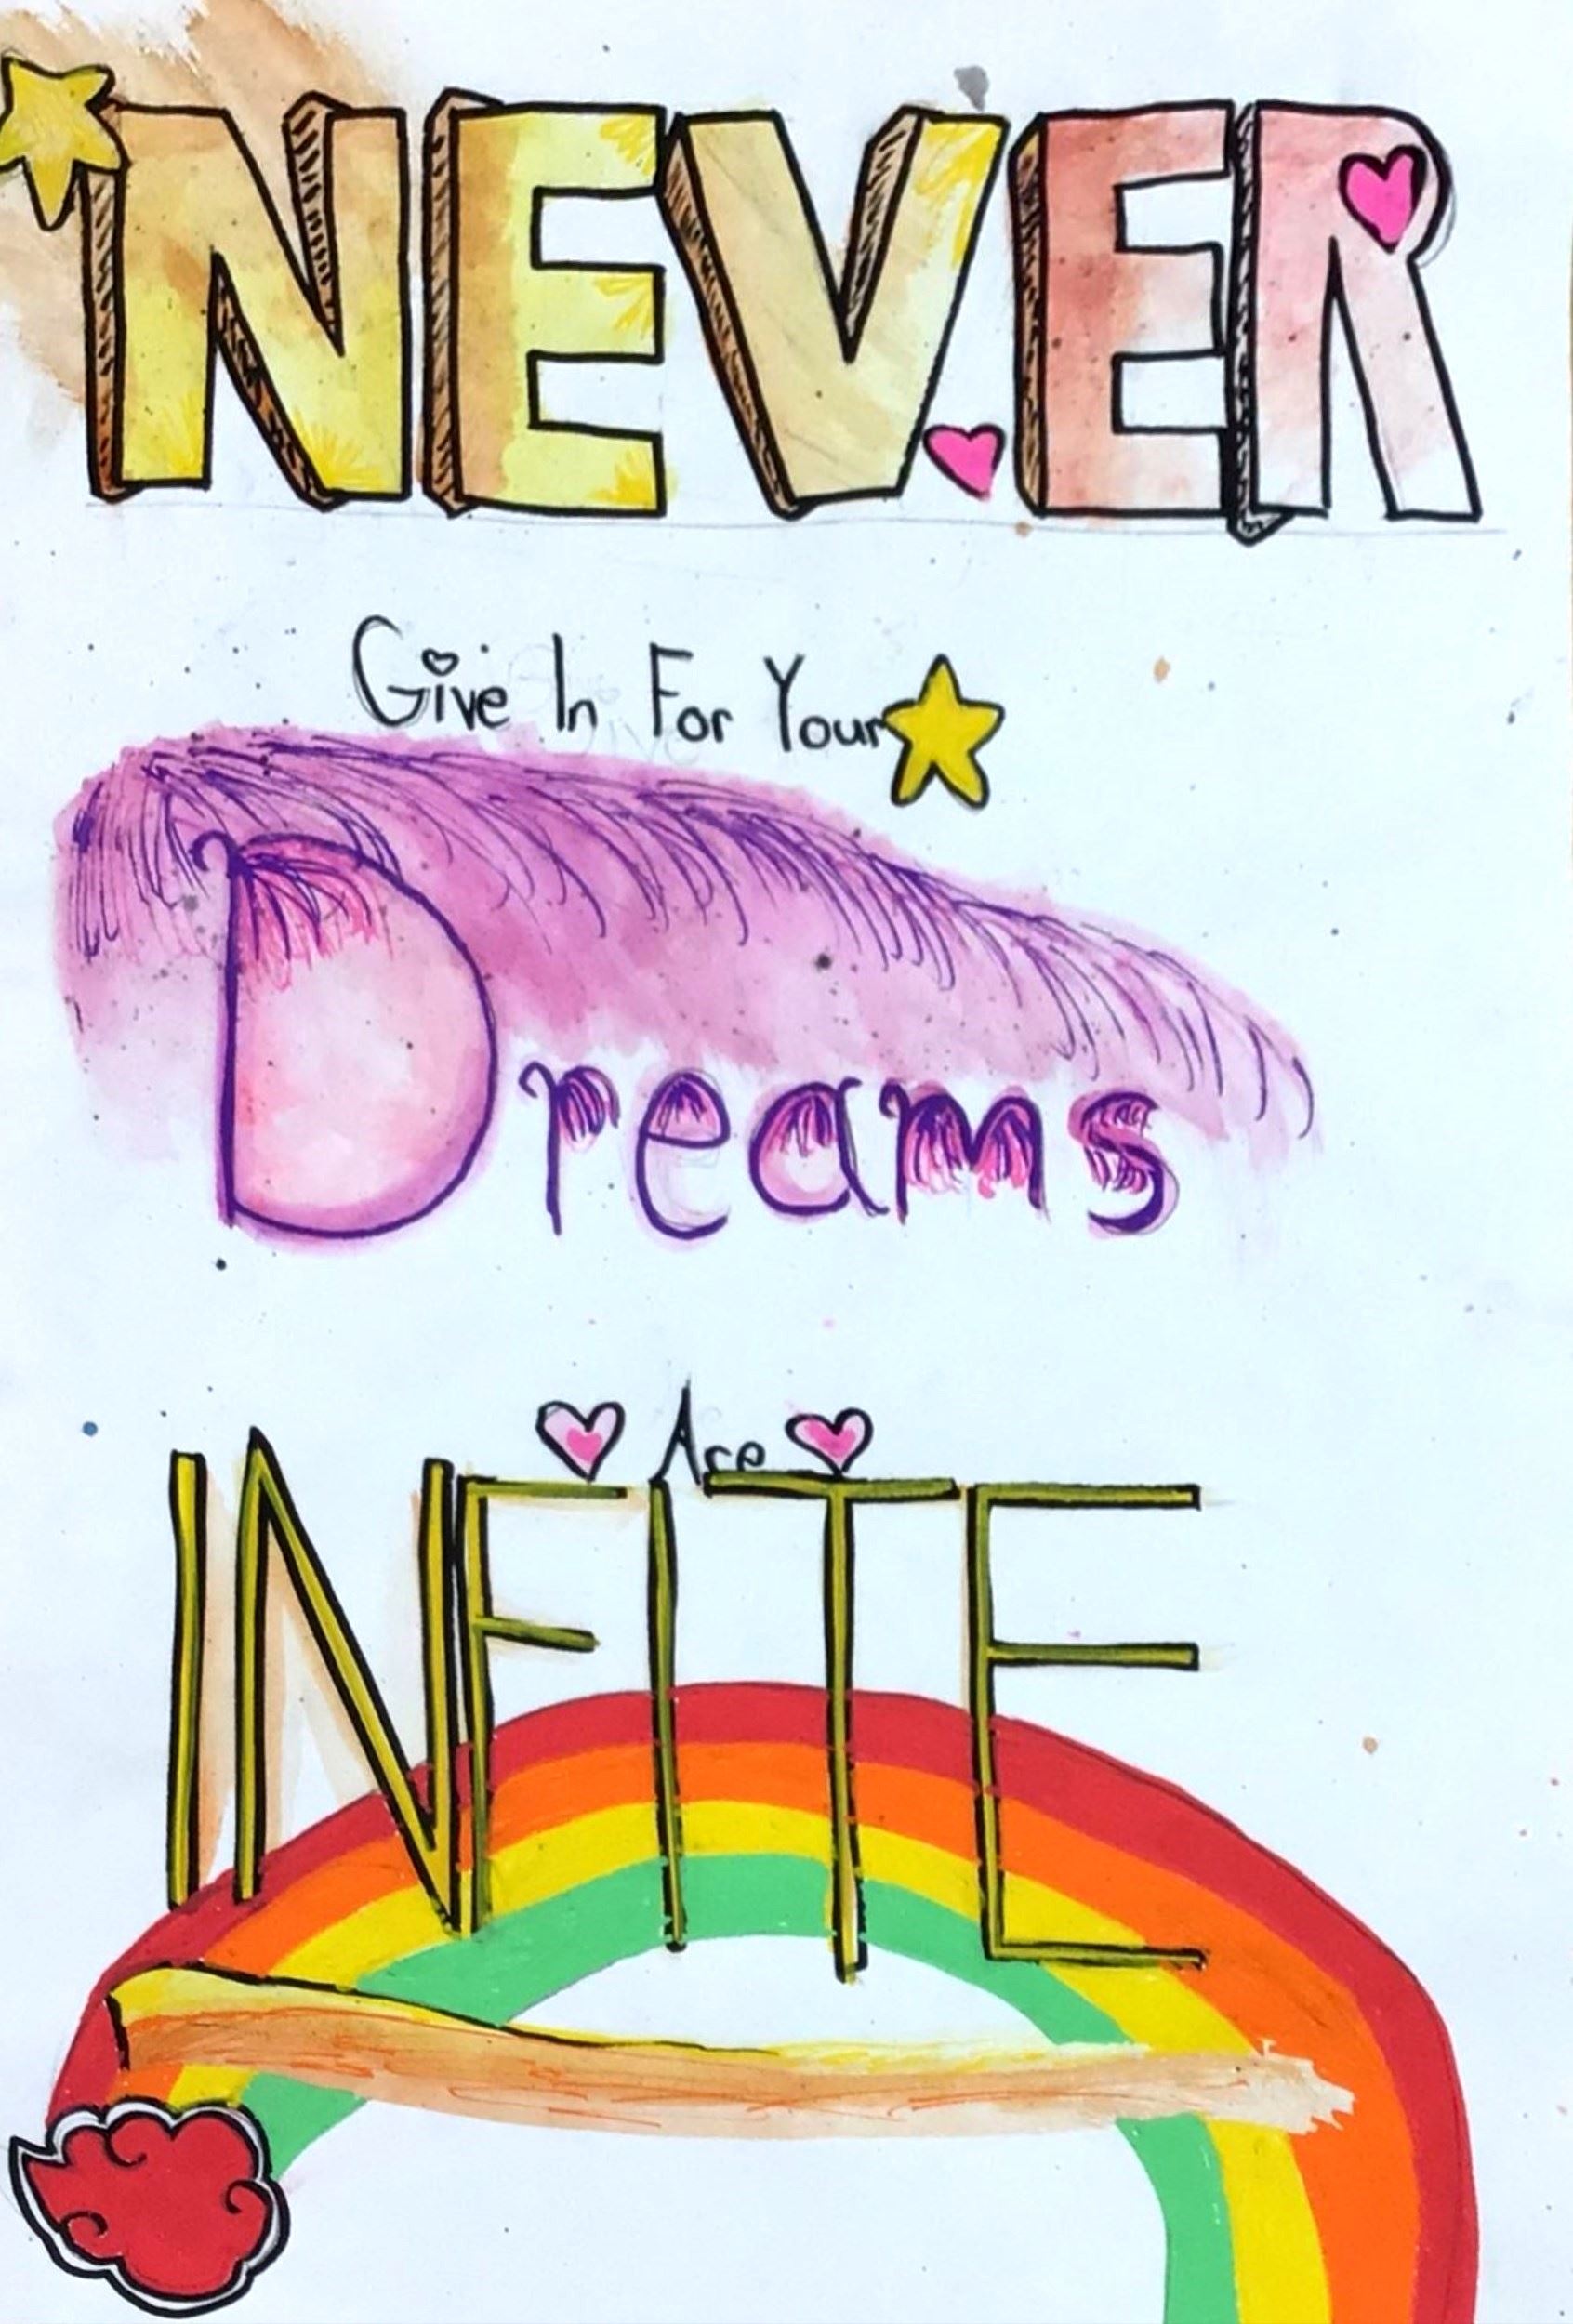 NEVER
Give In For Your
Dreams
Are
INFITE